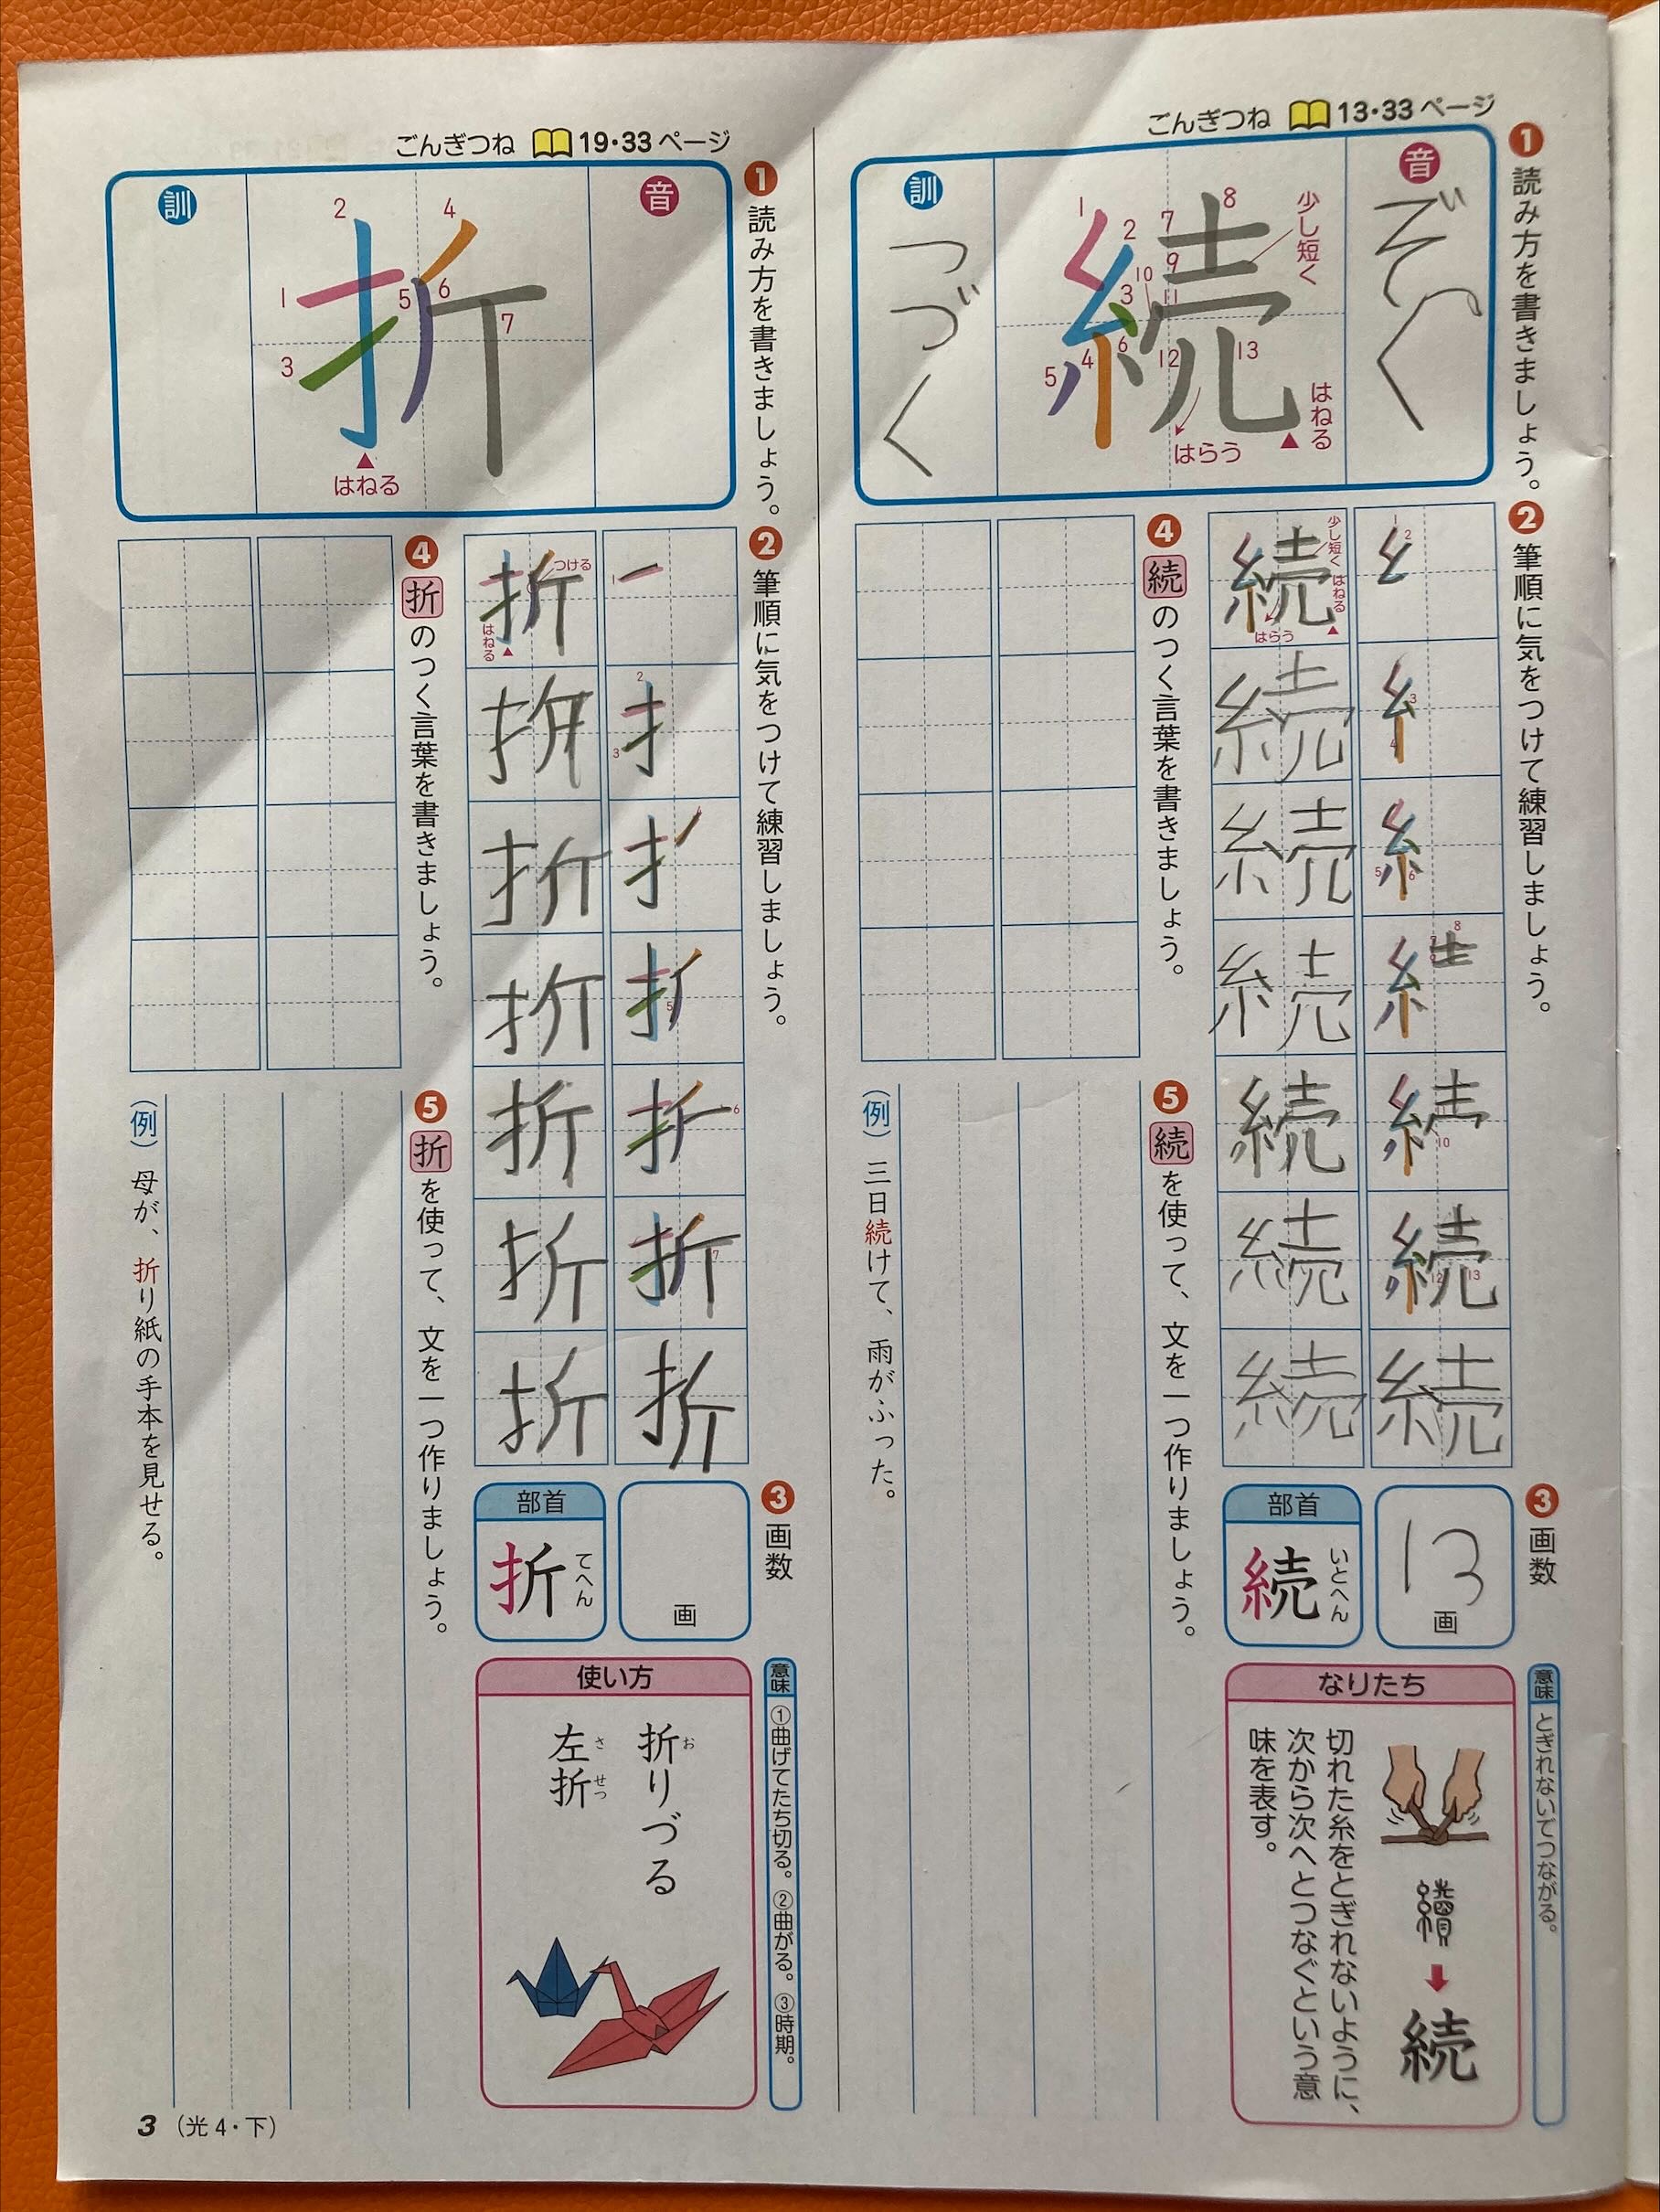 ごんぎつね 13・33ページ
1 読み方を書きましょう。
音
ぞく
続
少し短く
はねる
はらう
1 2 3 4 5 6 7 8 9 10 11 12 13
訓
つづく
2 筆順に気をつけて練習しましょう。
続
続 続 続 続 続 続 続
少し短く
はねる
はらう
3 画数
13画
部首
続 いとへん
意味 とぎれないでつながる。
なりたち
續
続
切れた糸をとぎれないように、
次から次へとつなぐという意
味を表す。
4 続のつく言葉を書きましょう。
5 続を使って、文を一つ作りましょう。
(例) 三日続けて、雨がふった。
ごんぎつね 19・33ページ
1 読み方を書きましょう。
音
折
はねる
1 2 3 4 5 6 7
訓
2 筆順に気をつけて練習しましょう。
折 折
折 折 折 折 折 折 折
つける
はねる
3 画数
画
部首
折 てへん
意味 ①曲げてたち切る。②曲がる。③時期。
使い方
折りづる
お
左折
させつ
4 折のつく言葉を書きましょう。
5 折を使って、文を一つ作りましょう。
(例) 母が、折り紙の手本を見せる。
3 (光4・下)